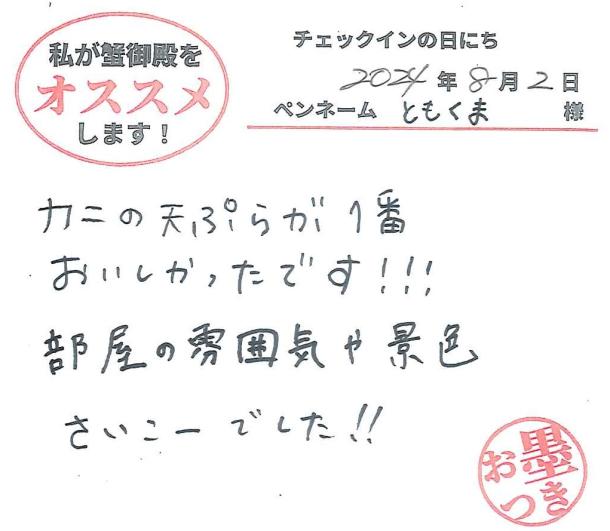 私が蟹御殿を
オススメ
します！
チェックインの日にち
2024年8月2日
ペンネーム ともくま 様
カニの天ぷらが1番
おいしかったです!!!
部屋の雰囲気や景色
さいこーでした!!
お墨
つき